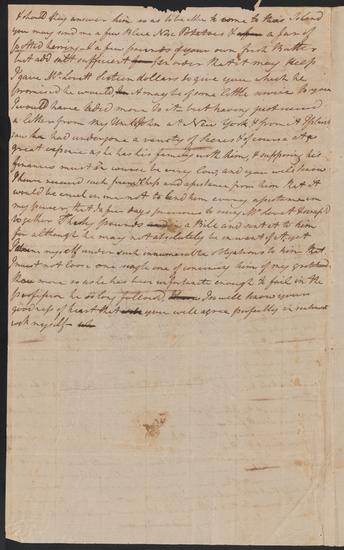 & should they answer him so as to be able to come to this Island
you may send me a few Blue Nose Potatoes & a Jar of
potted herring & a few pounds of your own fresh Butter
but add salt sufficient in order that it may keep
I gave Mr Lovett sixteen dollars to give you which he
promised he would it may be of some little service to you
I would have sent more to it but having just received
a letter from my Uncle John at New York & from it I plainly
see him had undergone a variety of scenes & of course at a
great expence as he has his family with him, & supposing his
finances must of course be very low, and you well know
I have received such friendship and assistance from him that it
would be cruel in me not to lend him every assistance in
my power, that a few days previous to seeing Mr Lovett I scraped
together Thirty pounds a Bill and sent it to him
for although he may not absolutely be in want of it, yet
I deem myself under such innumerable obligations to him that
I must not loose one single one of convincing him of my gratitude
the more so as he has been unfortunate enough to fail in the
profession he so long followed, I so well know your
goodness of heart that you will agree perfectly in sentiment
with myself